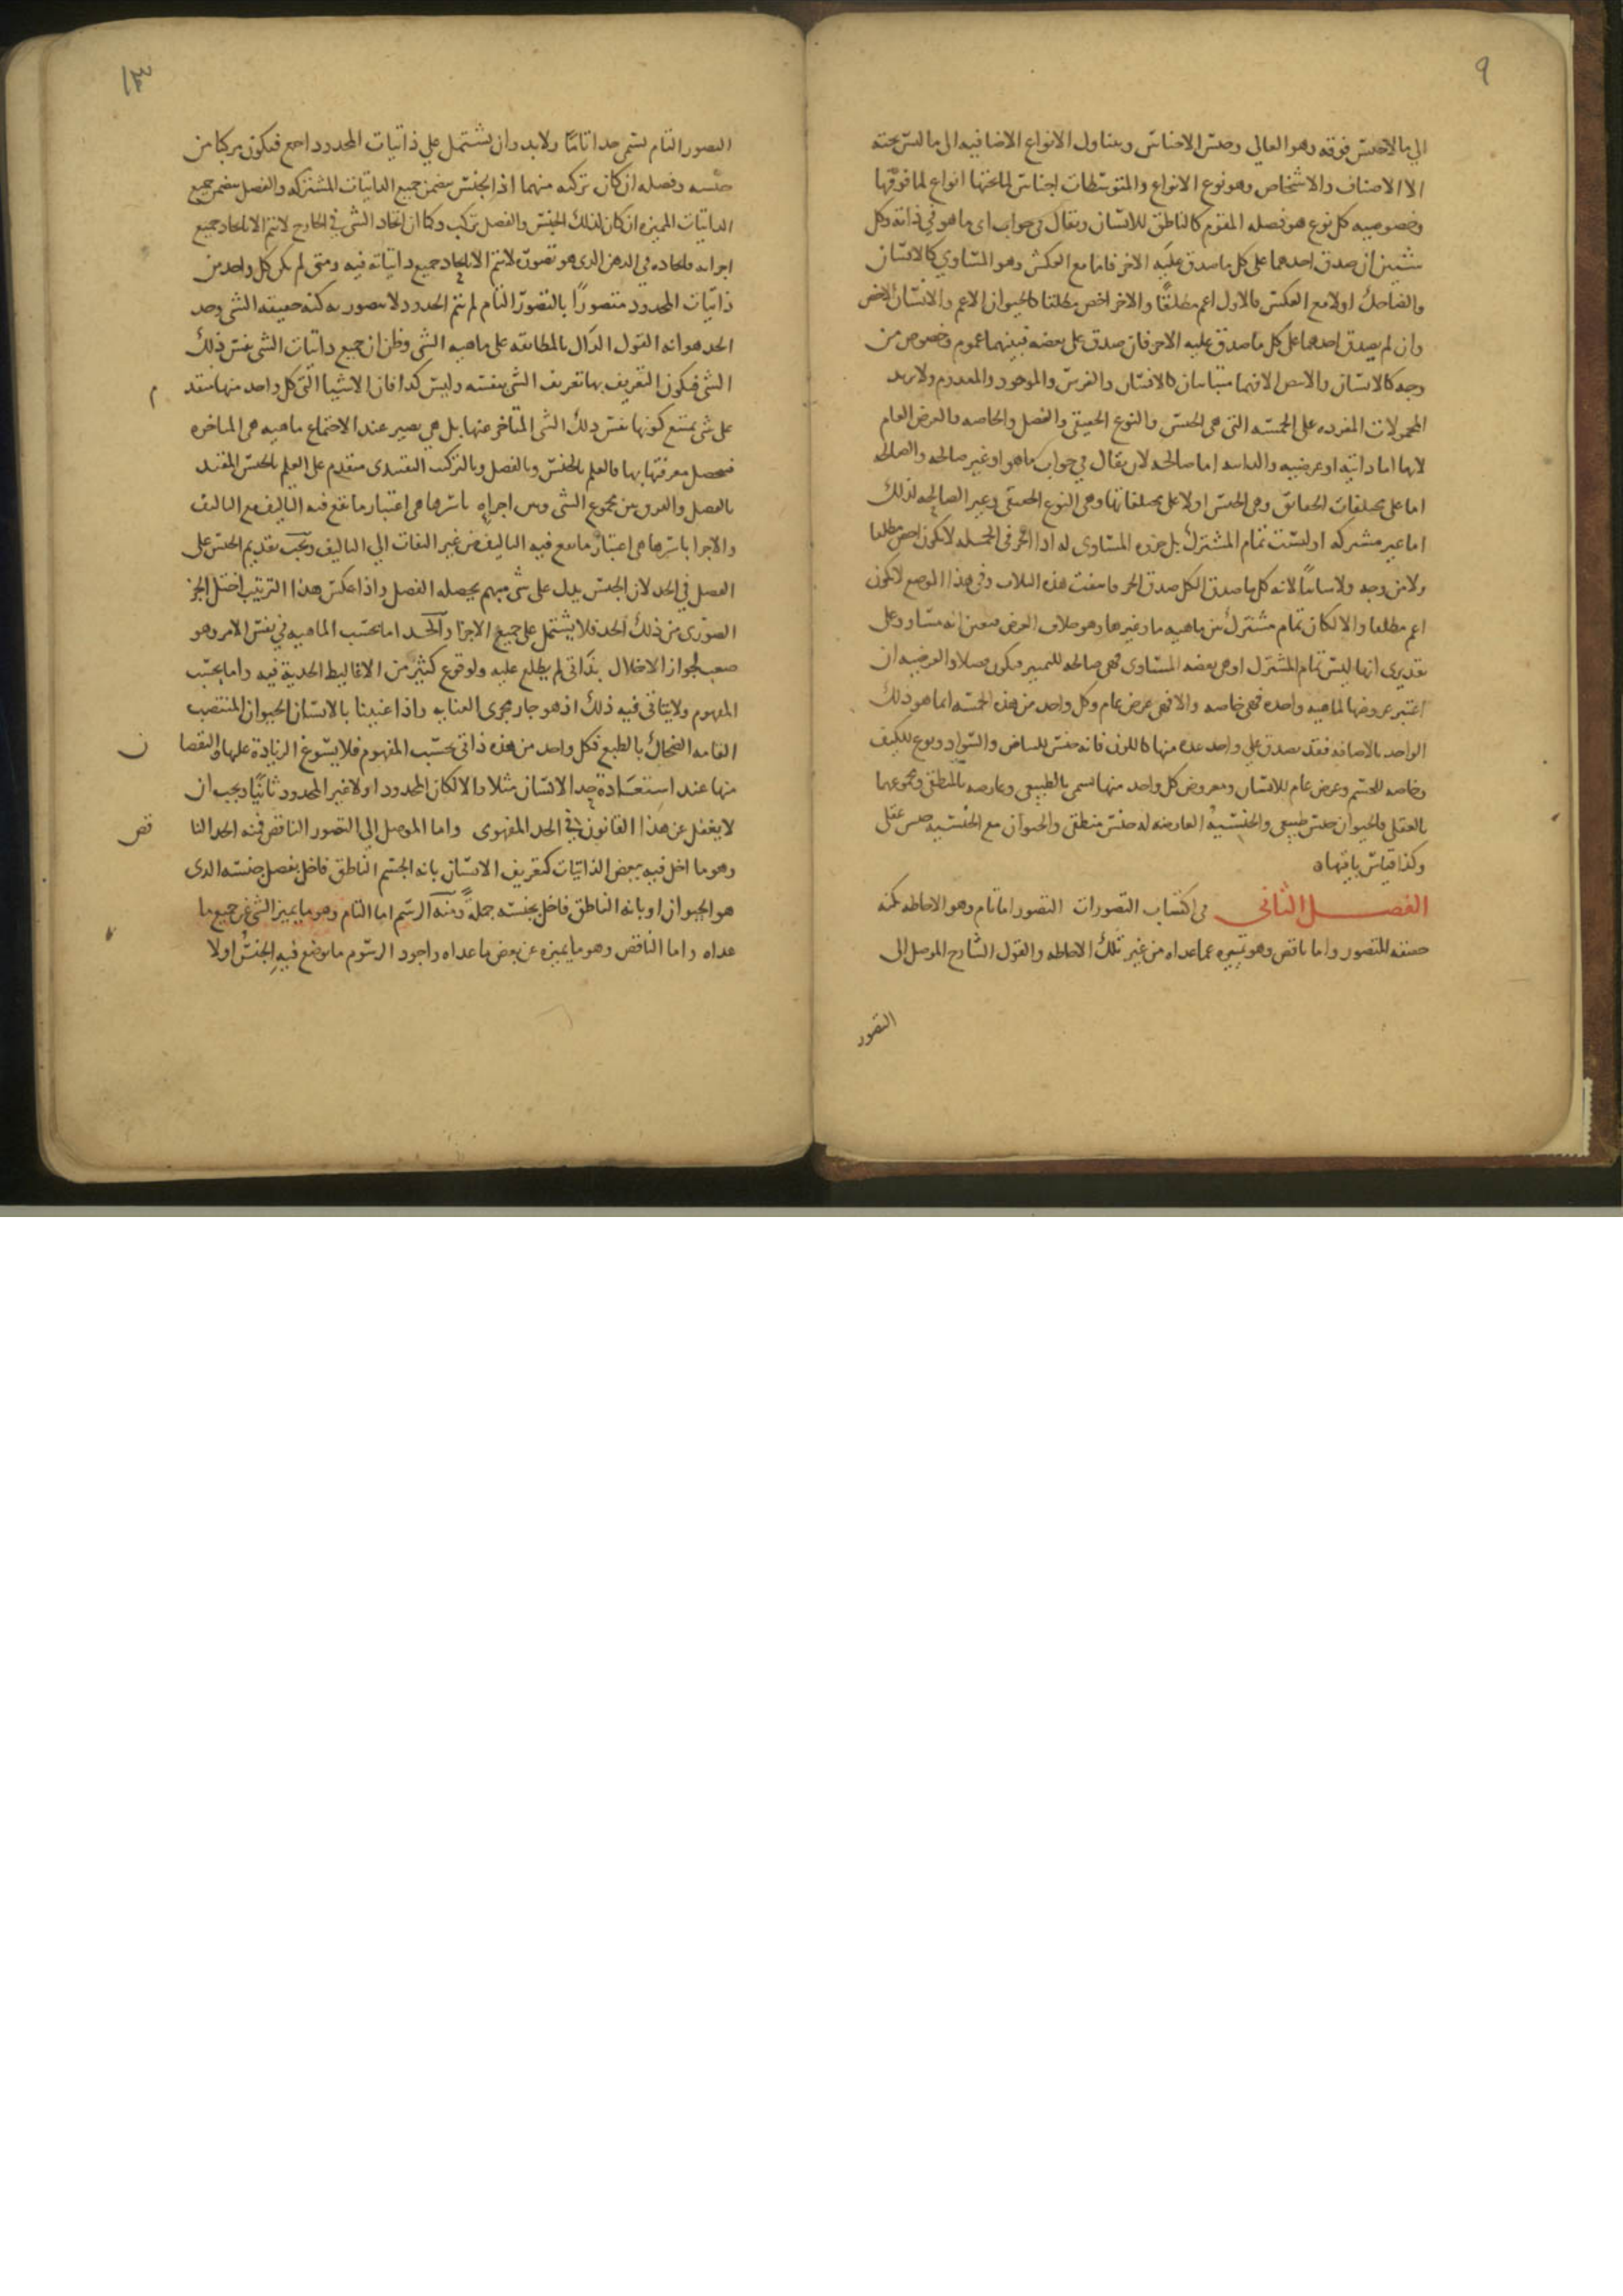 ٩
الي ما لا جنس فوقه وهو العالي وجنس الاجناس ويتناول الانواع الاضافيه الى ما ليس تحته
الا الاصناف والاشخاص وهو نوع الانواع والمتوسطات اجناس لما تحتها انواع لما فوقها
وخصوصيه كل نوع هو فصله المقوم كالناطق للانسان ويقال في جواب اى ما هو في ذاته وكل
شيئين ان صدق احدهما على كل ما صدق عليه الاخر فاما مع العكس وهو المتساوي كالانسان
والضاحك اولا مع العكس فالاول اعم مطلقا والاخر اخص مطلقا كالحيوان الاعم والانسان الاخص
وان لم يصدق احدهما على كل ما صدق عليه الاخر فان صدق على بعضه فبينهما عموم وخصوص من
وجه كالانسان والابيض والا فهما متباينان كالانسان والفرس والموجود والمعدوم ولا يزيد
المحمولات المفرده على الخمسه التى هى الجنس والنوع الحقيقى والفصل والخاصه والعرض العام
لانها اما ذاتيه او عرضيه والذاتيه اما صالحه لان يقال في جواب ما هو او غير صالحه والصالحه
اما على مختلفات الحقائق وهى الجنس اولا على مختلفاتها وهى النوع الحقيقى وغير الصالحه لذلك
اما غير مشتركه او ليست تمام المشترك بل جزوه المساوى له اذا الجزء فى الجمله لا يكون اخص مطلقا
ولا من وجه ولا مباينا لانه كل ما صدق الكل صدق الجزء فانتفت هذه الثلاث وفى هذا الموضع لا يكون
اعم مطلقا والا لكان تمام مشترك بين ماهيه ما وغيرها وهو خلاف الفرض فتعين انه مساو وعلى
تقديرى انها ليس تمام المشترك او هى بعضه المساوى فهى صالحه للتمييز فيكون فصلا والعرضيه ان
اعتبر عروضها لماهيه واحده فهى خاصه والا فهى عرض عام وكل واحد من هذه الخمسه انما هو ذلك
الواحد بالاضافه فقد يصدق على واحد عده منها كاللون فانه جنس للبياض والسواد ونوع للكيف
وخاصه للجسم وعرض عام للانسان ومعروض كل واحد منها يسمى بالطبيعى وعارضه بالمنطقى ومجموعهما
بالعقلى فالحيوان جنس طبيعى والجنسيه العارضه له جنس منطقى والحيوان مع الجنسيه جنس عقلى
وكذا قياس باقيها ه
الفصل الثانى فى اكتساب التصورات التصور اما تام وهو الاحاطه بكنه
حقيقه المتصور واما ناقص وهو تمييزه عما عداه من غير تلك الاحاطه والقول الشارح الموصل الى
التصور
١٣
التصور التام يسمى حدا تاما ولا بد وان يشتمل علي ذاتيات المحدود اجمع فيكون مركبا من
جنسه وفصله ان كان تركبه منهما اذ الجنس يتضمن جميع الذاتيات المشتركه والفصل يتضمن جميع
الذاتيات المميزه ان كان لذلك الجنس والفصل تركيب وكما ان ايجاد الشى في الخارج لا يتم الا بايجاد جميع
اجزائه فايجاده في الذهن الذى هو تصوره لا يتم الا بايجاد جميع ذاتياته فيه ومتى لم يكن كل واحد من
ذاتيات المحدود متصورا بالتصور التام لم يتم الحد ولا يتصور به كنه حقيقه الشى وحد
الحد هو انه القول الدال بالمطابقه على ماهيه الشى وظن ان جميع ذاتيات الشى نفس ذلك
الشى فيكون التعريف بها تعريف الشى بنفسه وليس كذا فان الاشيا التى كل واحد منها متقد م
على شى يمتنع كونها نفس ذلك الشى المتاخر عنها بل هي يصير عند الاجتماع ماهيه هى المتاخره
فيحصل معرفتها بها فالعلم بالجنس وبالفصل وبالتركيب التقييدى متقدم على العلم بالجنس المقيد
بالفصل والفرق بين مجموع الشى وبين اجزايه باسرها هى اعتبار ما يقع فيه التاليف مع التاليف
والاجزا باسرها هى اعتبار ما يقع فيه التاليف من غير التفات الي التاليف ويجب تقديم الجنس على
الفصل في الحد لان الجنس يدل على شى مبهم يحصله الفصل واذا عكس هذا الترتيب اختل الجز
الصورى من ذلك الحد فلا يشتمل على جميع الاجزا والحد اما بحسب الماهيه في نفس الامر وهو
صعب لجواز الاخلال بذاتى لم يطلع عليه ولوقوع كثير من الاغاليط الحدية فيه واما بحسب
المفهوم ولا يتاتى فيه ذلك اذ هو جار مجرى العنايه واذا عنينا بالانسان الحيوان المنتصب
القامه الضحاك بالطبع فكل واحد من هذه ذاتى بحسب المفهوم فلا يسوغ الزيادة عليها والنقصا ن
منها عند استعادة حد الانسان مثلا والا لكان المحدود اولا غير المحدود ثانيا ويجب ان
لا يغفل عن هذا القانون في الحد المفهومى واما الموصل الي التصور الناقص فمنه الحد النا قص
وهو ما اخل فيه ببعض الذاتيات كتعريف الانسان بانه الجسم الناطق فاخل بفصل جنسه الذى
هو الحيوان او بانه الناطق فاخل بجنسه جملة ومنه الرسم اما التام وهو ما يميز الشى عن جميع ما
عداه واما الناقص وهو ما يميزه عن بعض ما عداه واجود الرسوم ما يوضع فيه الجنس اولا